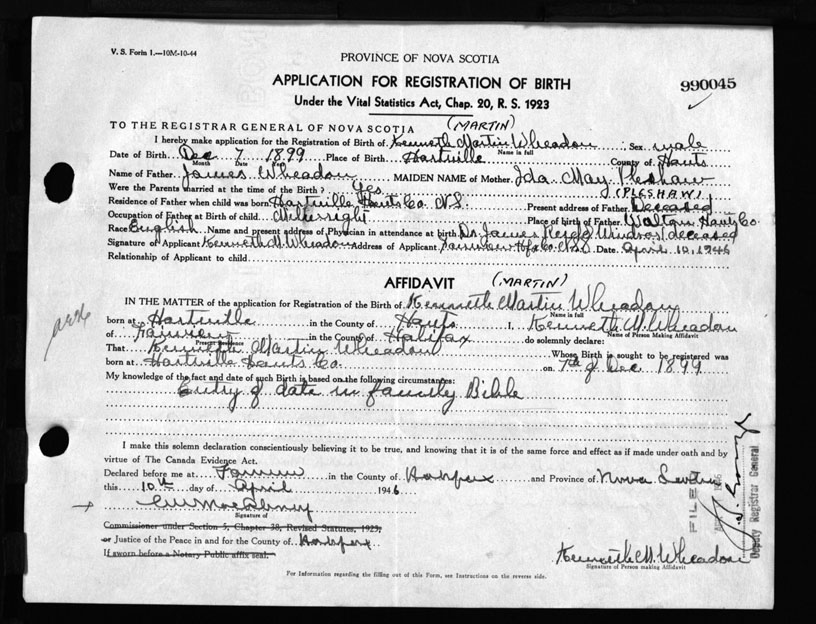 V. S. Form 1.—10M-10-44
PROVINCE OF NOVA SCOTIA
APPLICATION FOR REGISTRATION OF BIRTH
990045
Under the Vital Statistics Act, Chap. 20, R. S. 1923
TO THE REGISTRAR GENERAL OF NOVA SCOTIA (MARTIN)
I hereby make application for the Registration of Birth of Kenneth Martin Wheadon Sex male
Name in full
Date of Birth Dec 7 1899 Place of Birth Hartville County of Hants
Month Date Year
Name of Father James Wheadon MAIDEN NAME of Mother Ida May Pleshaw
Were the Parents married at the time of the Birth? Yes (PLESHAW)
Residence of Father when child was born Hartville Hants Co. N.S. Present address of Father Deceased
Occupation of Father at Birth of child Millwright Place of birth of Father Walton Hants Co
Race English Name and present address of Physician in attendance at birth Dr. James Reid Windsor deceased
Signature of Applicant Kenneth M. Wheadon Address of Applicant Fairview Hfx Co. N.S. Date April 10, 1946
Relationship of Applicant to child
AFFIDAVIT (MARTIN)
IN THE MATTER of the application for Registration of the Birth of Kenneth Martin Wheadon
Name in full
born at Hartville in the County of Hants I, Kenneth M. Wheadon
Name of Person Making Affidavit
of Fairview in the County of Halifax do solemnly declare:
Present Residence
That Kenneth Martin Wheadon Whose Birth is sought to be registered was
born at Hartville Hants Co. on 7th of Dec 1899
My knowledge of the fact and date of such Birth is based on the following circumstances:
Entry of date in family Bible
I make this solemn declaration conscientiously believing it to be true, and knowing that it is of the same force and effect as if made under oath and by
virtue of The Canada Evidence Act.
Declared before me at in the County of Halifax and Province of Nova Scotia
this 10th day of April 1946
Signature of
Commissioner under Section 5, Chapter 38, Revised Statutes, 1923,
or Justice of the Peace in and for the County of Halifax
If sworn before a Notary Public affix seal.
Kenneth M. Wheadon
Signature of Person making Affidavit
For Information regarding the filling out of this Form, see Instructions on the reverse side.
FILED
Deputy Registrar General